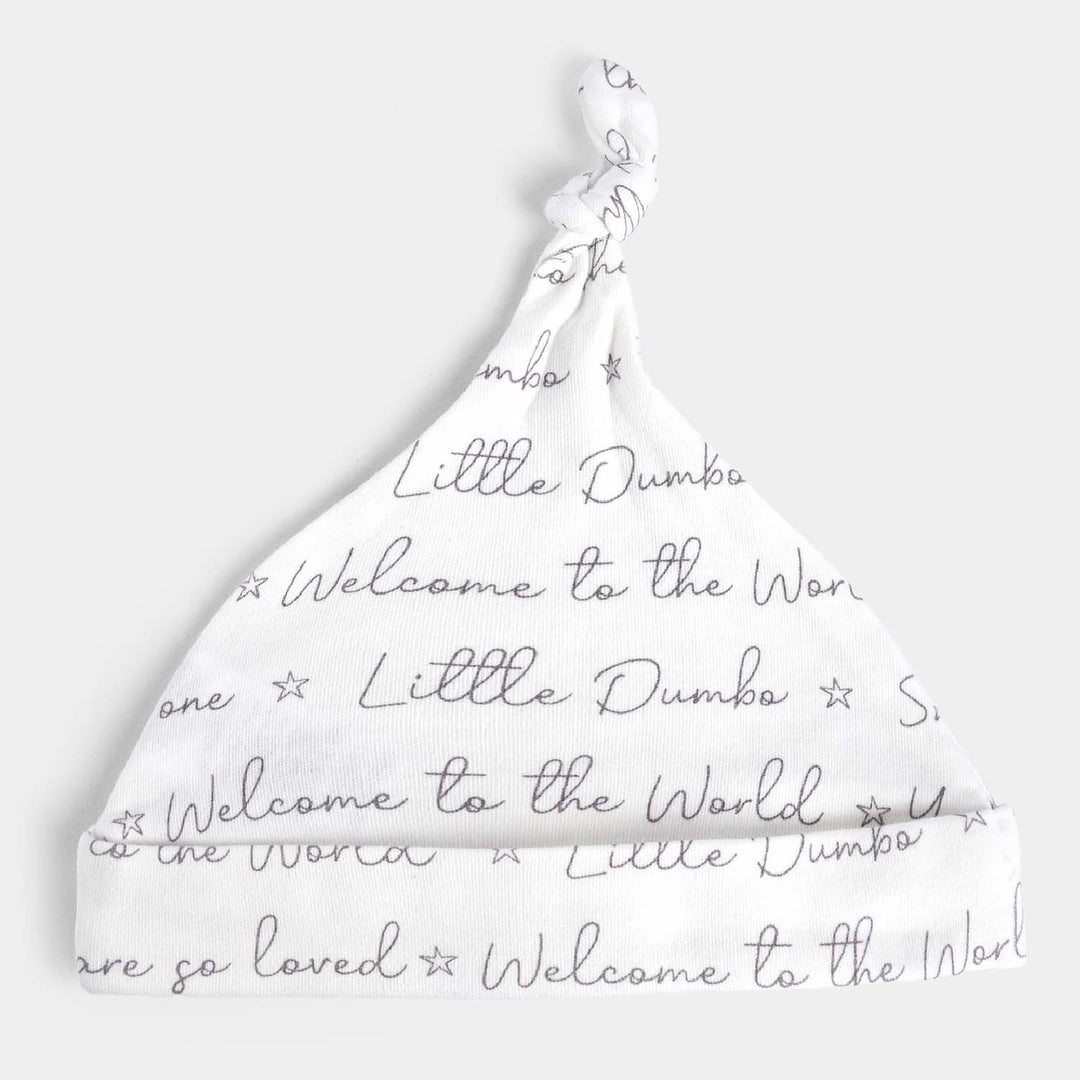 Little Dumbo
Welcome to the Worl
one Little Dumbo
Welcome to the World y
to the World Little Dumbo
are so loved Welcome to the Worl